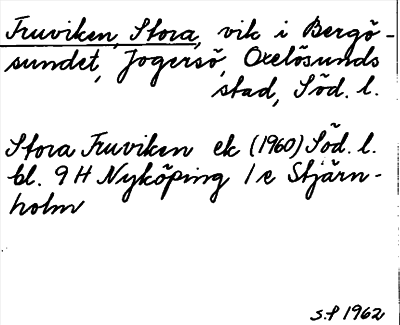 Fruviken, Stora, vik i Bergö-
sundet, Jogersö, Oxelösunds
stad, Söd. l.
Stora Fruviken ek (1960) Söd. l.
bl. 9 H Nyköping 1 e Stjärn-
holm
S.P 1962